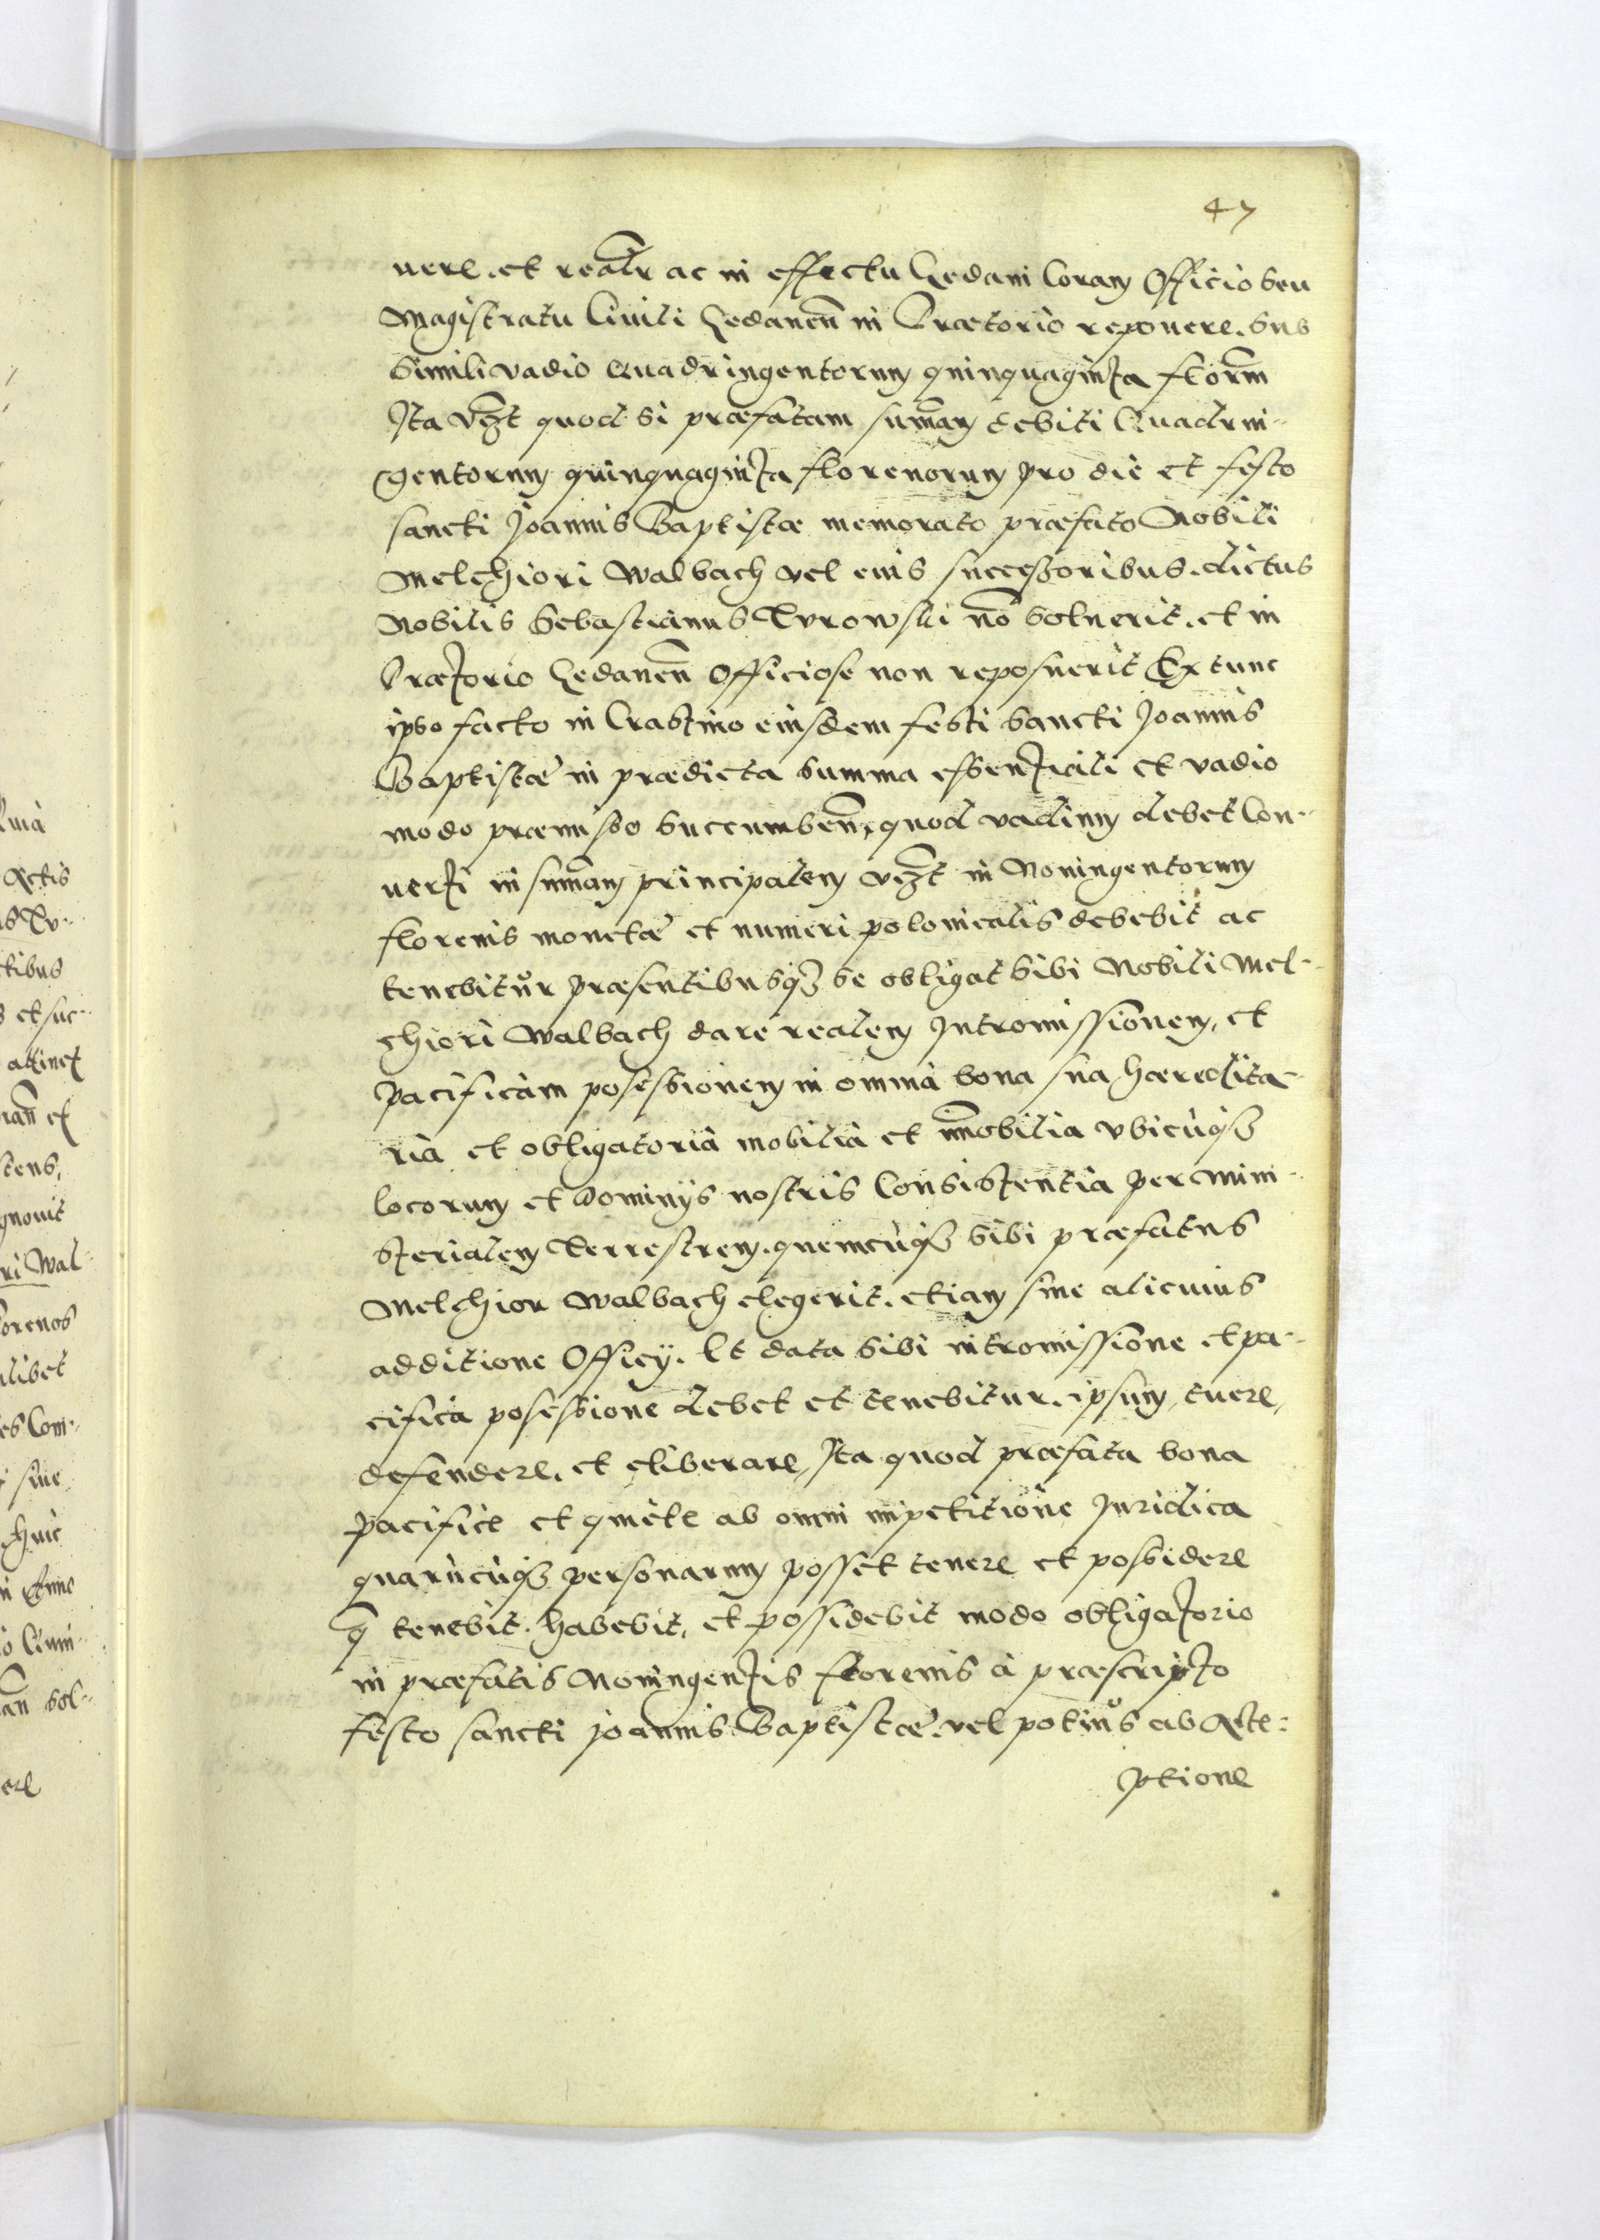 47
uere. et realr ac in effectu Gedani Coram Officio seu
Magistratu Ciuili Gedanen in Prætorio reponere. sub
simili vadio Quadringentorum quinquaginta florm
Ita vzt quod si præfatam sumam debiti Quadrin-
gentorum quinquaginta florenorum pro die et festo
sancti Joannis Baptistæ memorato præfato Nobili
Melchiori Walbach vel eius successoribus. dictus
Nobilis Sebastianus Turowski no soluerit. et in
Prætorio Gedanen Officiose non reposuerit Extunc
ipso facto in Crastino eiusdem festi Sancti Joannis
Baptistæ in prædicta summa essentiali et vadio
modo præmisso succumben, quod vadium debet Con-
uerti in sumam principalem vzt in Noningentorum
florenis monetæ et numeri polonicalis debebit ac
tenebitur præsentibusq se obligat sibi Nobili Mel-
chiori Walbach dare realem Intromissionem, et
pacificam possessionem in omnia bona sua hæredita-
ria et obligatoria mobilia et immobilia vbicuq
locorum et Dominijs nostris Consistentia per Mini-
sterialem Terrestrem. quemcuq sibi præfatus
Melchior Walbach elegerit. etiam sine alicuius
additione Officij. Et data sibi intromissione et pa-
cifica possessione debet et tenebitur. ipsum, tuere,
defendere. et eliberare, Ita quod præfata bona
pacifice et quiete ab omni impetitione Juridica
quarucuq personarum posset tenere et possidere
q tenebit. habebit, et possidebit modo obligatorio
in præfatis Noningentis florenis à præscripto
festo sancti Joannis Baptistæ. vel potius ab Acce-
ptione